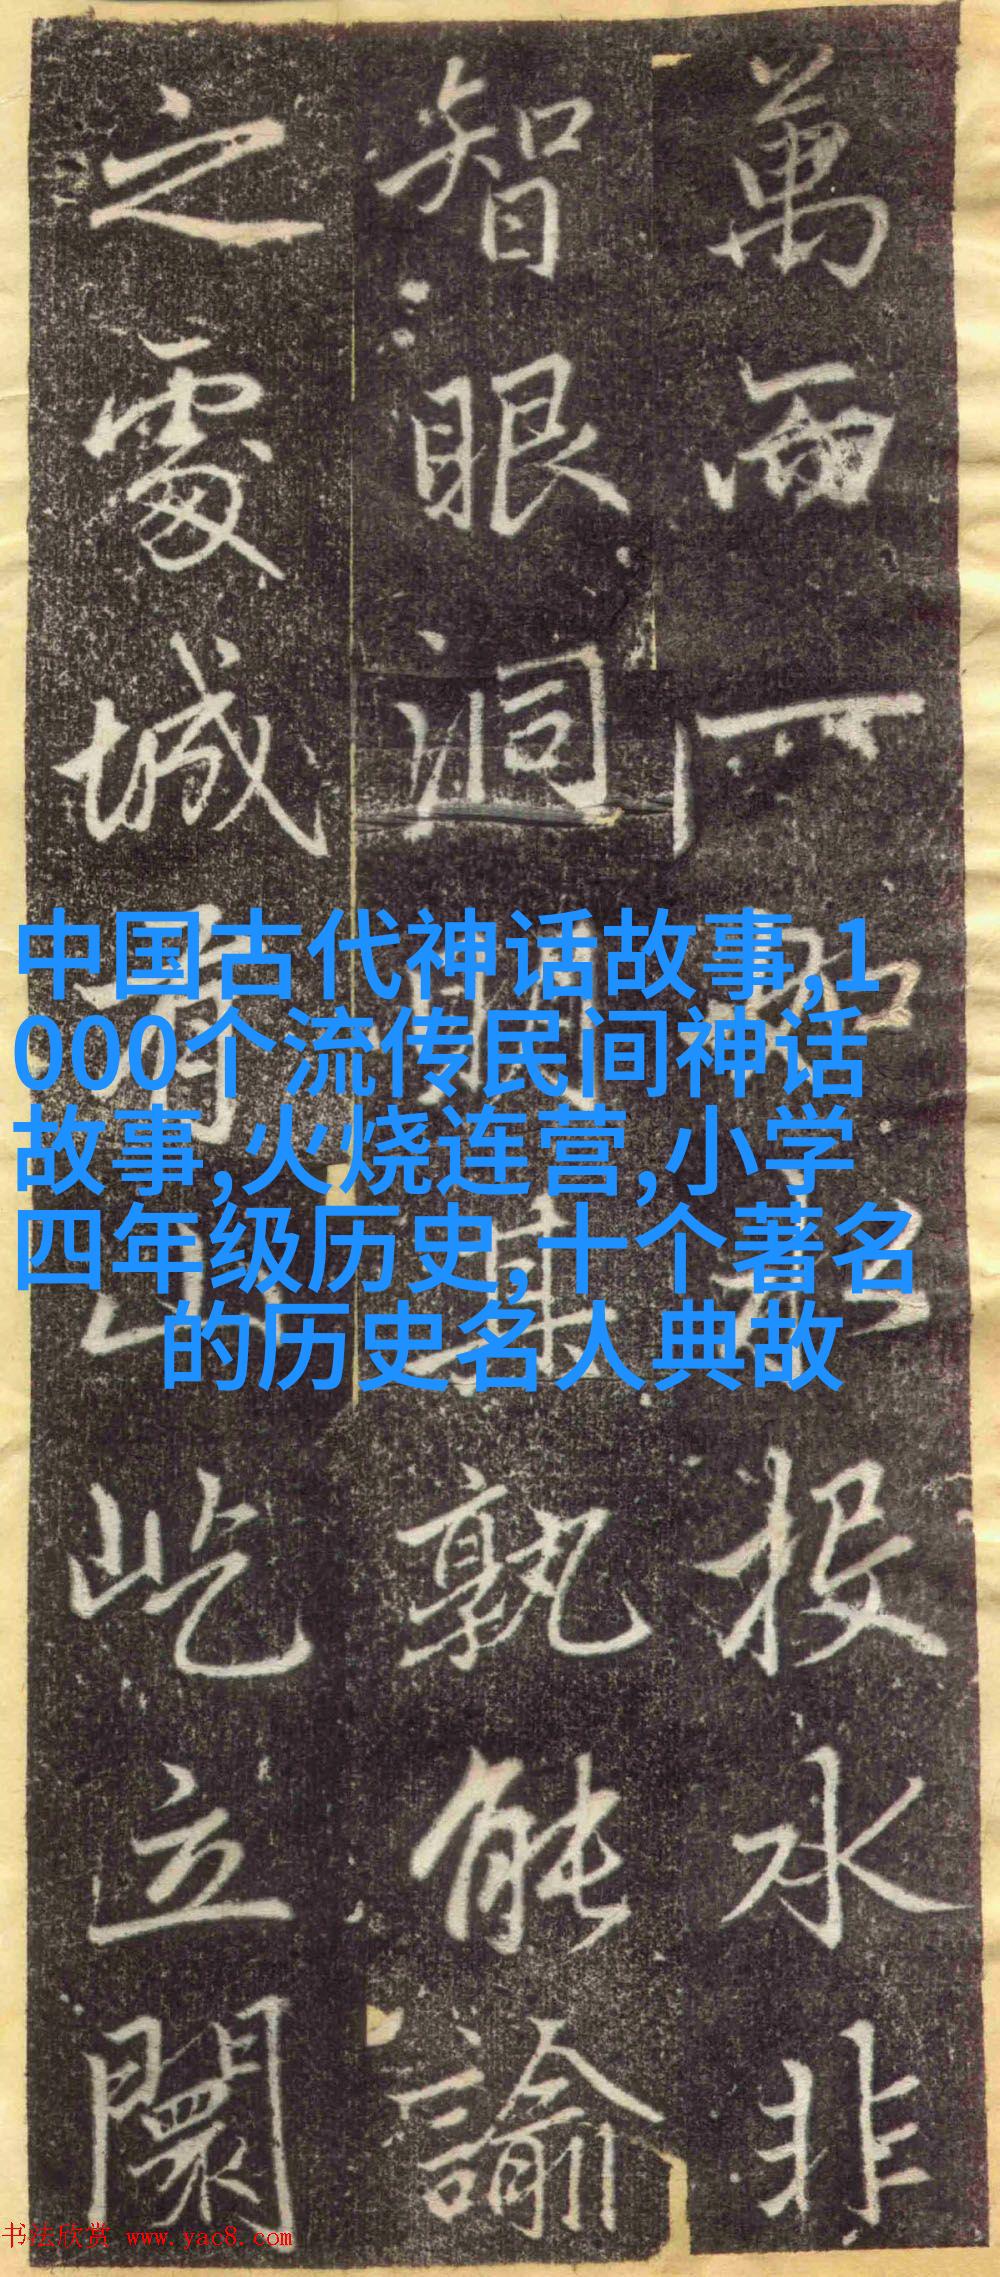 萬 一 投水非
智眼洞 孰能諭
之處城有山屹立闤
中国古代神话故事,1
000个流传民间神话
故事,火烧连营,小学
四年级历史,十个著名
的历史名人典故
书法欣赏 www.yac8.com